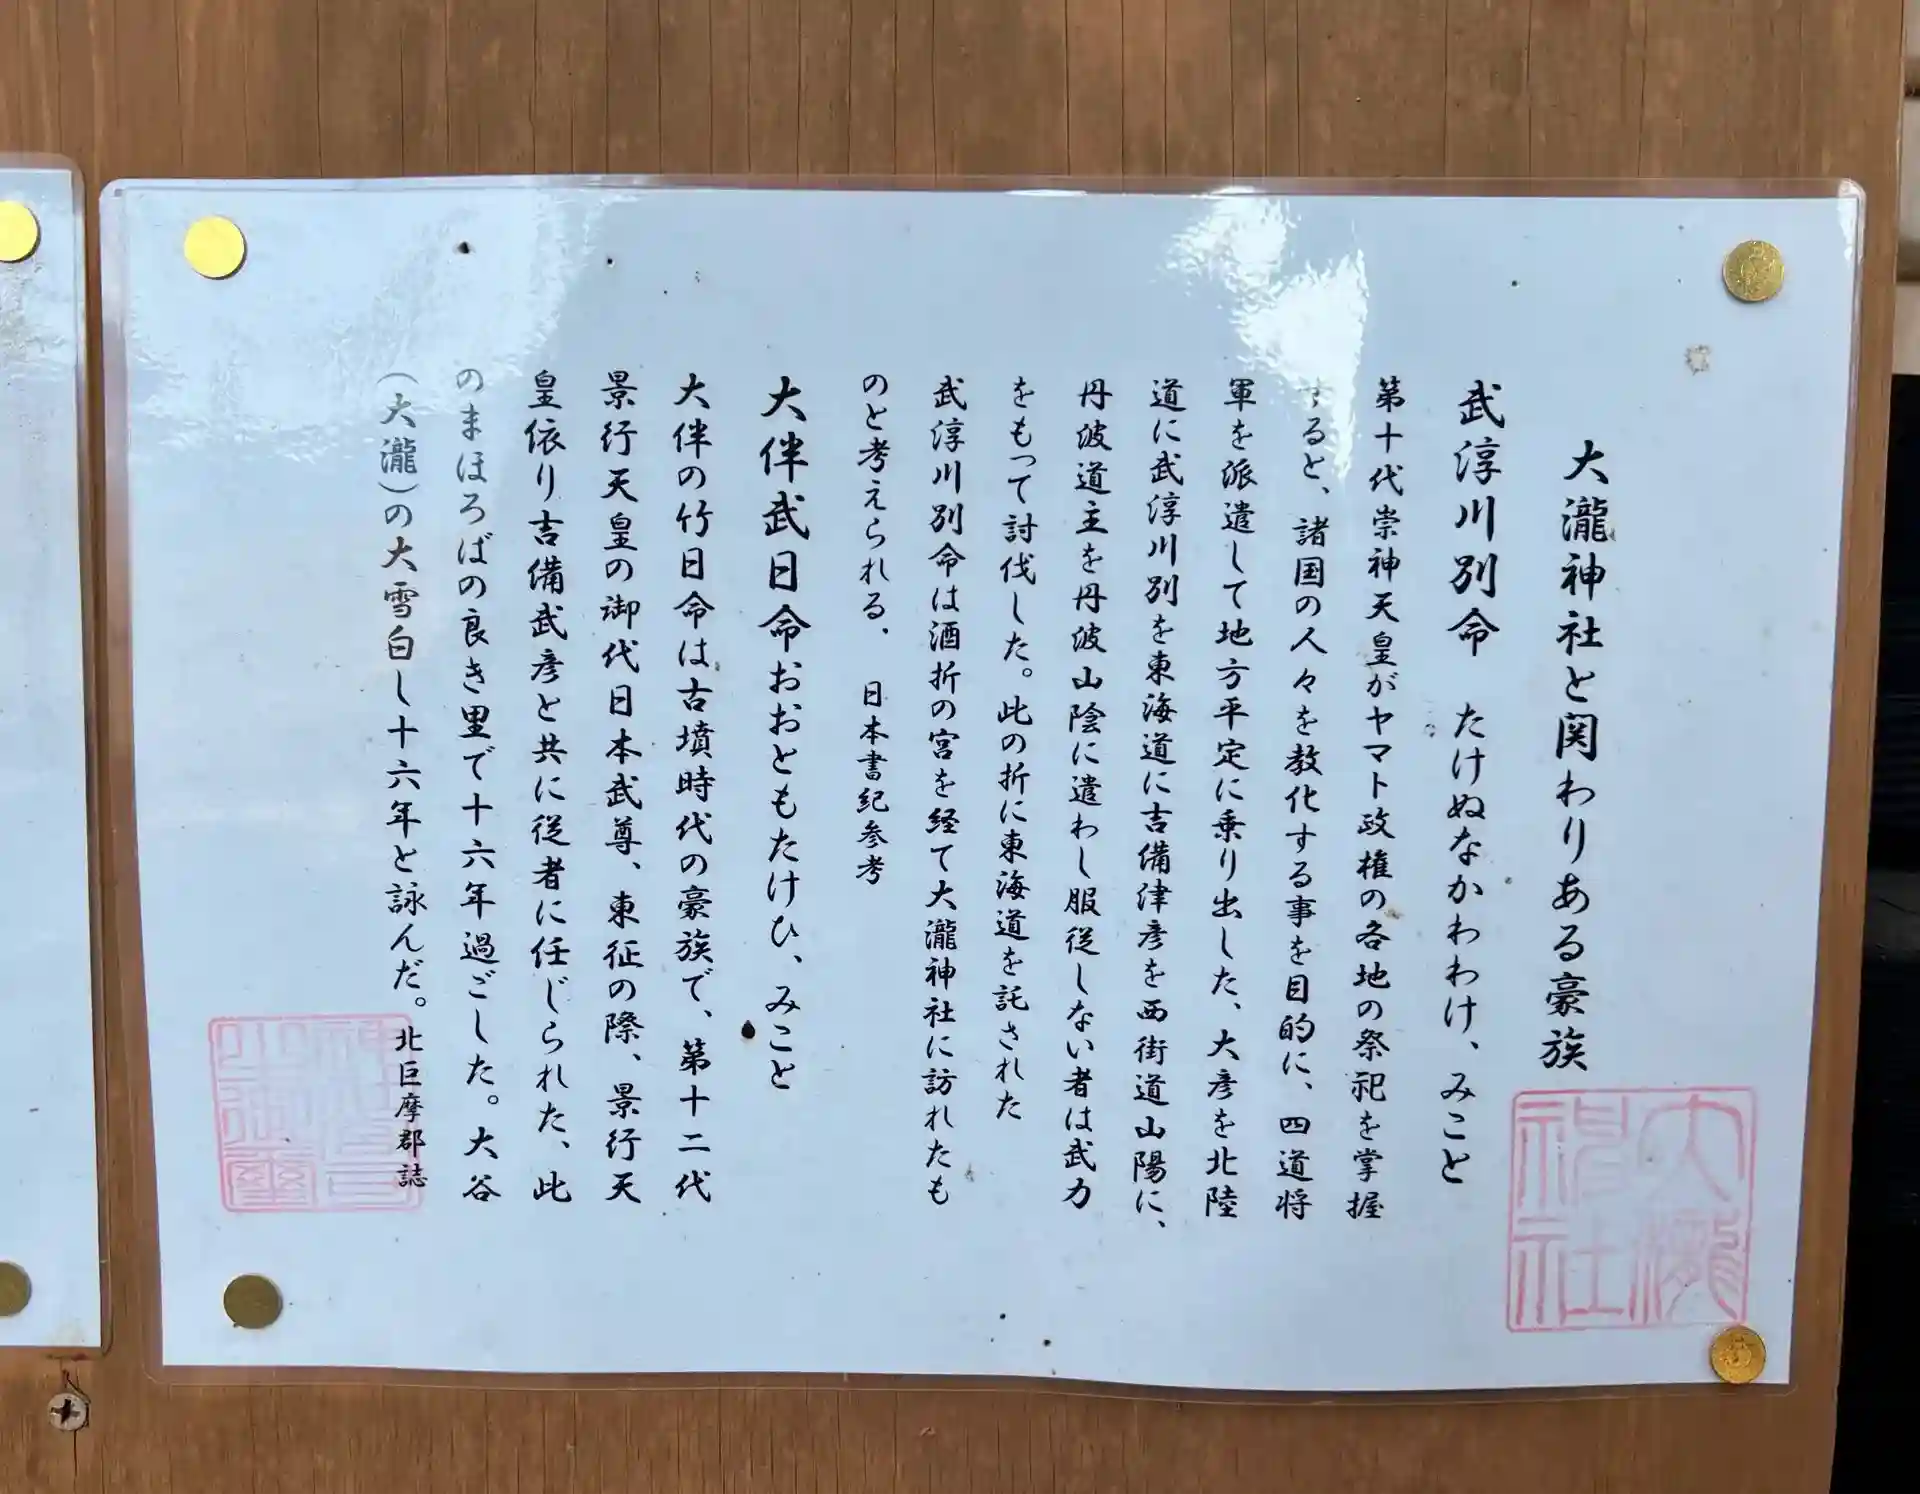 大瀧神社と関わりある豪族
武渟川別命　たけぬなかわわけ、みこと
第十代崇神天皇がヤマト政権の各地の祭祀を掌握
すると、諸国の人々を教化する事を目的に、四道将
軍を派遣して地方平定に乗り出した、大彦を北陸
道に武渟川別を東海道に吉備津彦を西街道山陽に、
丹波道主を丹波山陰に遣わし服従しない者は武力
をもって討伐した。此の折に東海道を託された
武渟川別命は酒折の宮を経て大瀧神社に訪れたも
のと考えられる、　日本書紀参考
大伴武日命おおともたけひ、みこと
大伴の竹日命は古墳時代の豪族で、第十二代
景行天皇の御代日本武尊、東征の際、景行天
皇依り吉備武彦と共に従者に任じられた、此
のまほろばの良き里で十六年過ごした。大谷
（大瀧）の大雪白し十六年と詠んだ。北巨摩郡誌
大瀧
神社